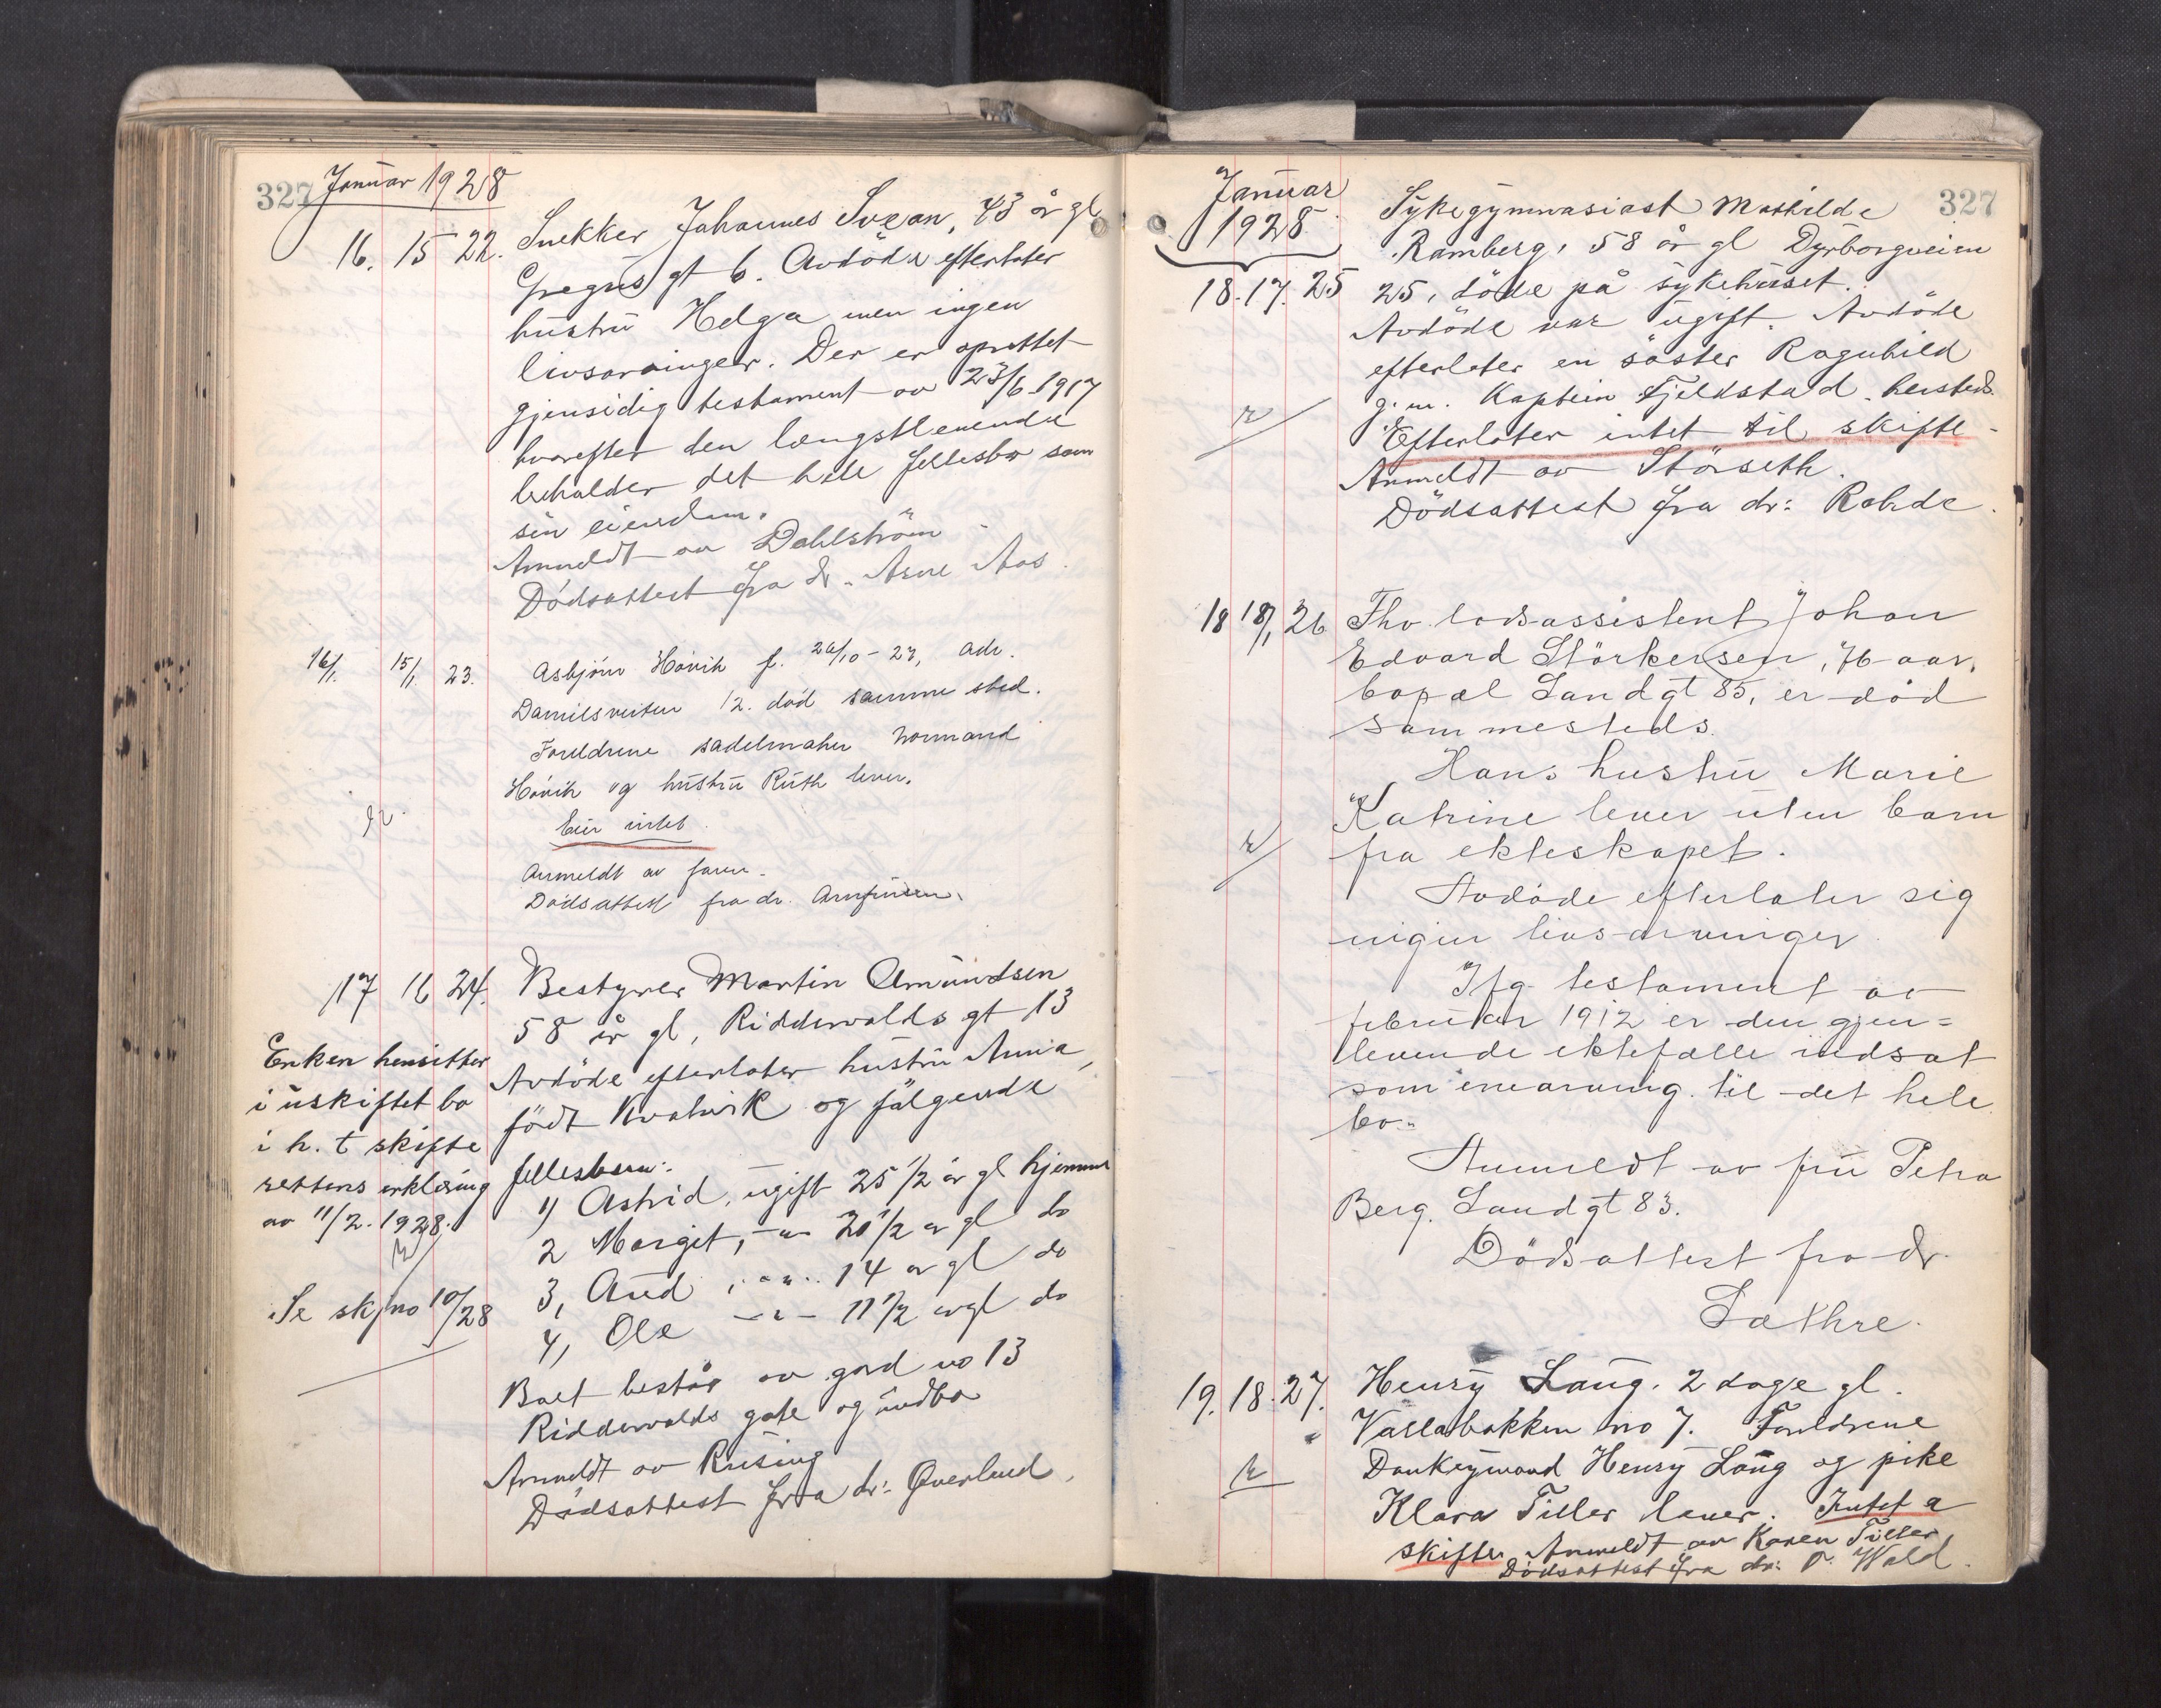 327 Januar 1928
16. 15 22. Snekker Johannes Svean, 43 år gl
Gregus gt 6. Avdöde efterlater
hustru Helga men ingen
livsarvinger. Der er oprettet
gjensidig testament av 23/6-1917
hvorefter den længstlevende
beholder det hele fellesbo som
sin eiendom.
Anmeldt av Dahlström
Dödsattest fra dr. Arne Aas.
16/1. 15/1. 23. Asbjörn Hövik f. 26/10-27, adr.
Danielsveiten 12. död samme sted.
Foreldrene sadelmaker Normand
Hövik og hustru Ruth lever.
Eier intet.
Anmeldt av faren.
Dödsattest fra dr. Arnfinsen.
17 16 24. Bestyrer Martin Amundsen
58 år gl, Ridderwolds gt 13
Avdöde efterlater hustru Anna,
födt Kvalvik og fölgende
fellesbarn:
1) Astrid, ugift 25 1/2 år gl hjemme
2 Margit, -"- 20 1/2 år gl do
3, Aud, -"- 14 år gl do
4, Ole -"- 11 1/2 år gl do
Boet består av gård no 13
Ridderwolds gate og indbo
Anmeldt av Rising
Dödsattest fra dr: Qverlund.
Enken hensitter
i uskiftet bo
i h. t skifte
rettens erklæring
av 11/2. 1928.
Se skj no 10/28
Januar
1928. 327
18. 17. 25 Sykegymnasiast Mathilde
Ramberg, 58 år gl Dyrborgveien
25, döde på sykehuset.
Avdöde var ugift. Avdöde
efterlater en söster Ragnhild
g. m. Kaptein Fjeldstad hersteds.
Efterlater intet til skifte.
Anmeldt av Störseth.
Dödsattest fra dr: Rohde.
18 18/1 26 Fhv. losassistent Johan
Edvard Störkersen, 76 aar,
bopæl Sandgt 85, er död
sammesteds.
Hans hustru Marie
Katrine lever uten barn
fra ekteskapet.
Avdöde efterlater sig
ingen livsarvinger.
Ifg. testament av
februar 1912 er den gjen=
levende ektefælle indsat
som enearving til det hele
bo.
Anmeldt av fru Petra
Berg. Sandgt 83.
Dödsattest fra dr.
Sæthre.
19. 18. 27. Henry Lang. 2 dage gl.
Vallabakken no 7. Foreldrene
Donkeymand Henry Lang og pike
Klara Tiller lever. Intet a
skifte. Anmeldt av Karen Tiller
Dödsattest fra dr: P. Wold.